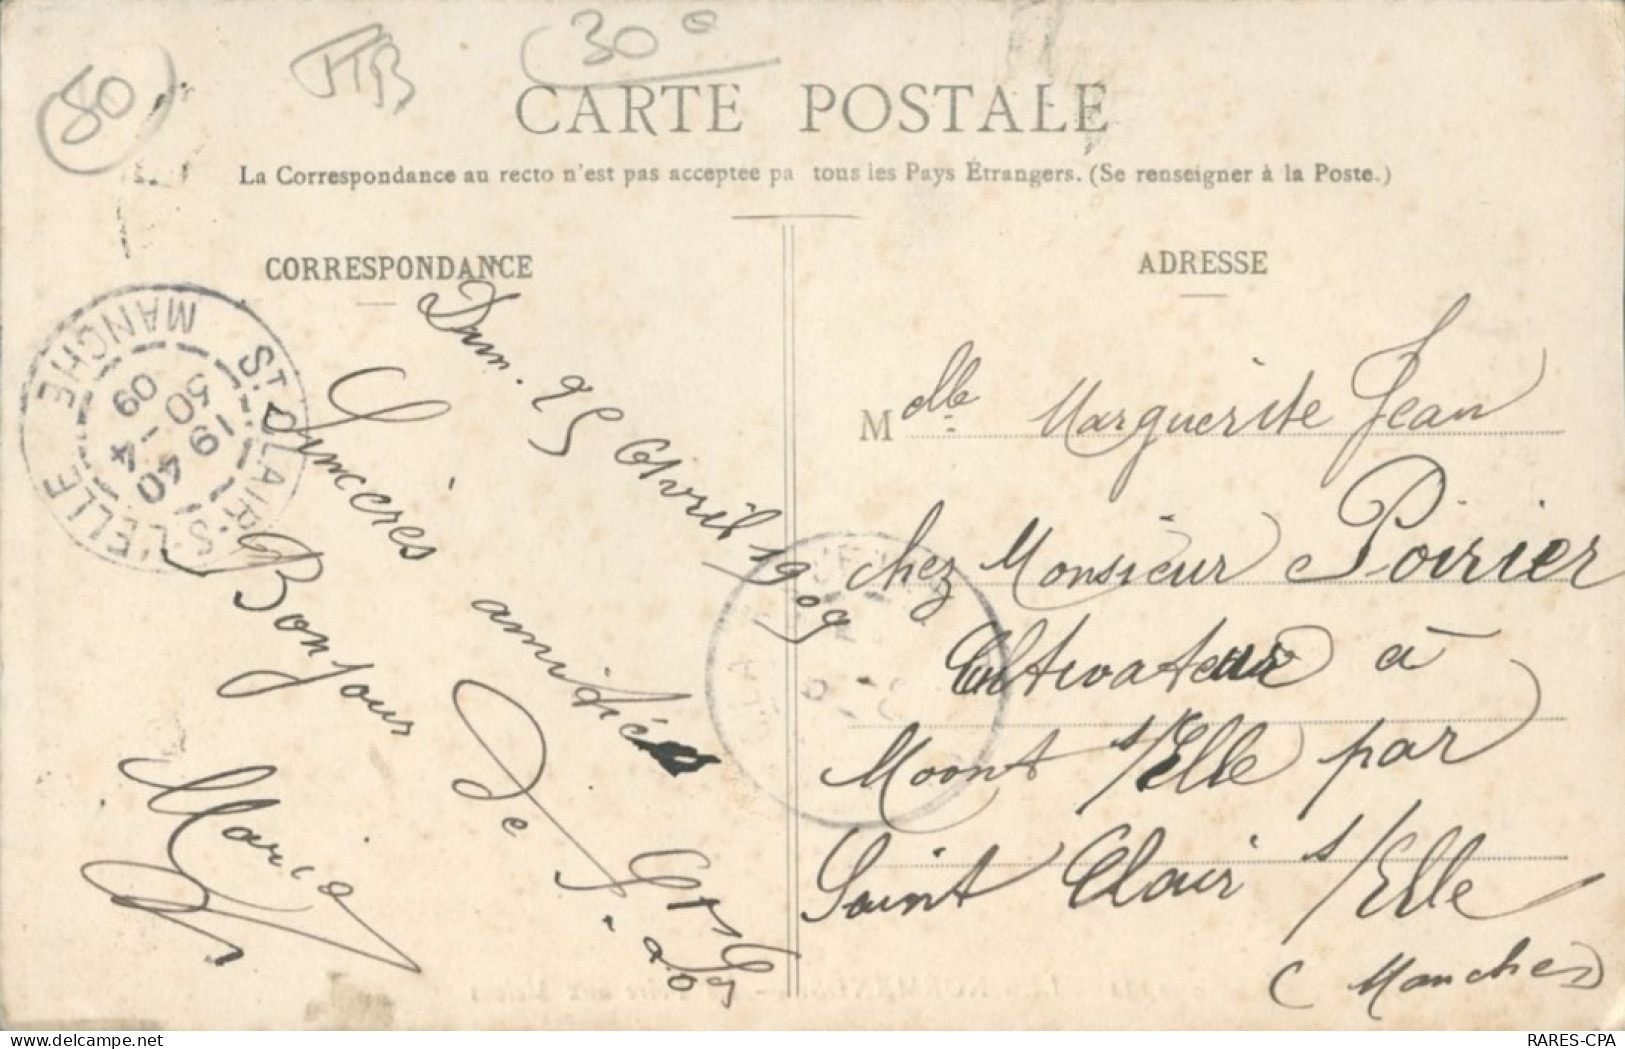 50
TTB
30 €
CARTE POSTALE
La Correspondance au recto n'est pas acceptee pa tous les Pays Étrangers. (Se renseigner à la Poste.)
CORRESPONDANCE
Dim. 25 Avril 1909
Sincères amitiés
Bonjour de
Marie
ST CLAIR S/L'ELLE
MANCHE
19 50
4
09
ADRESSE
Mdlle Marguerite Jean
chez Monsieur Poirier
Cultivateur à
Moont s/Elle par
Saint Clair s/Elle
(Manche)
RARES-CPA